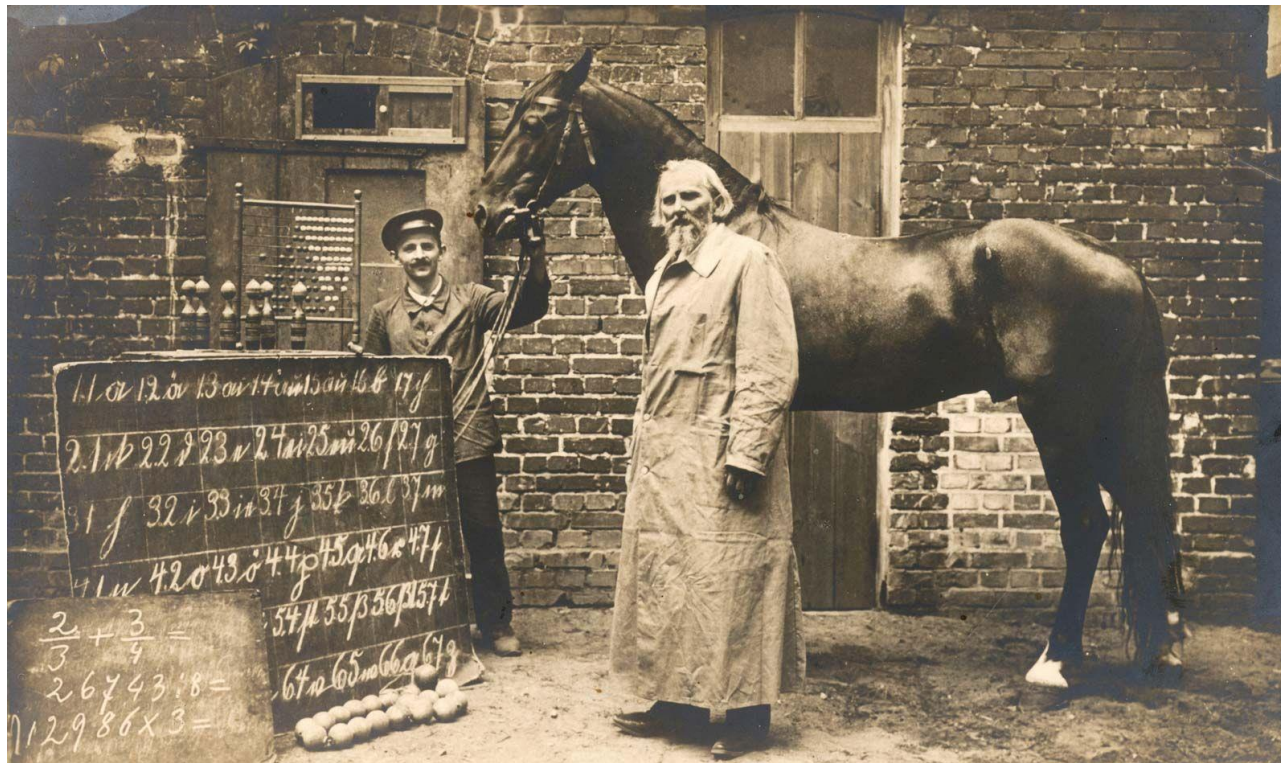 11 a 12 ä 13 au 14 15 16 b 17
21 ck 22 d 23 e 24 ei 25 eu 26 f 27 g
31 h 32 i 33 ie 34 j 35 k 36 l 37 m
41 n 42 o 43 ö 44 p 45 q 46 r 47 s
54 55 ß 56 57 t
64 65 66 67 z
2/3 + 3/4 =
26743 : 8 =
12986 x 3 =